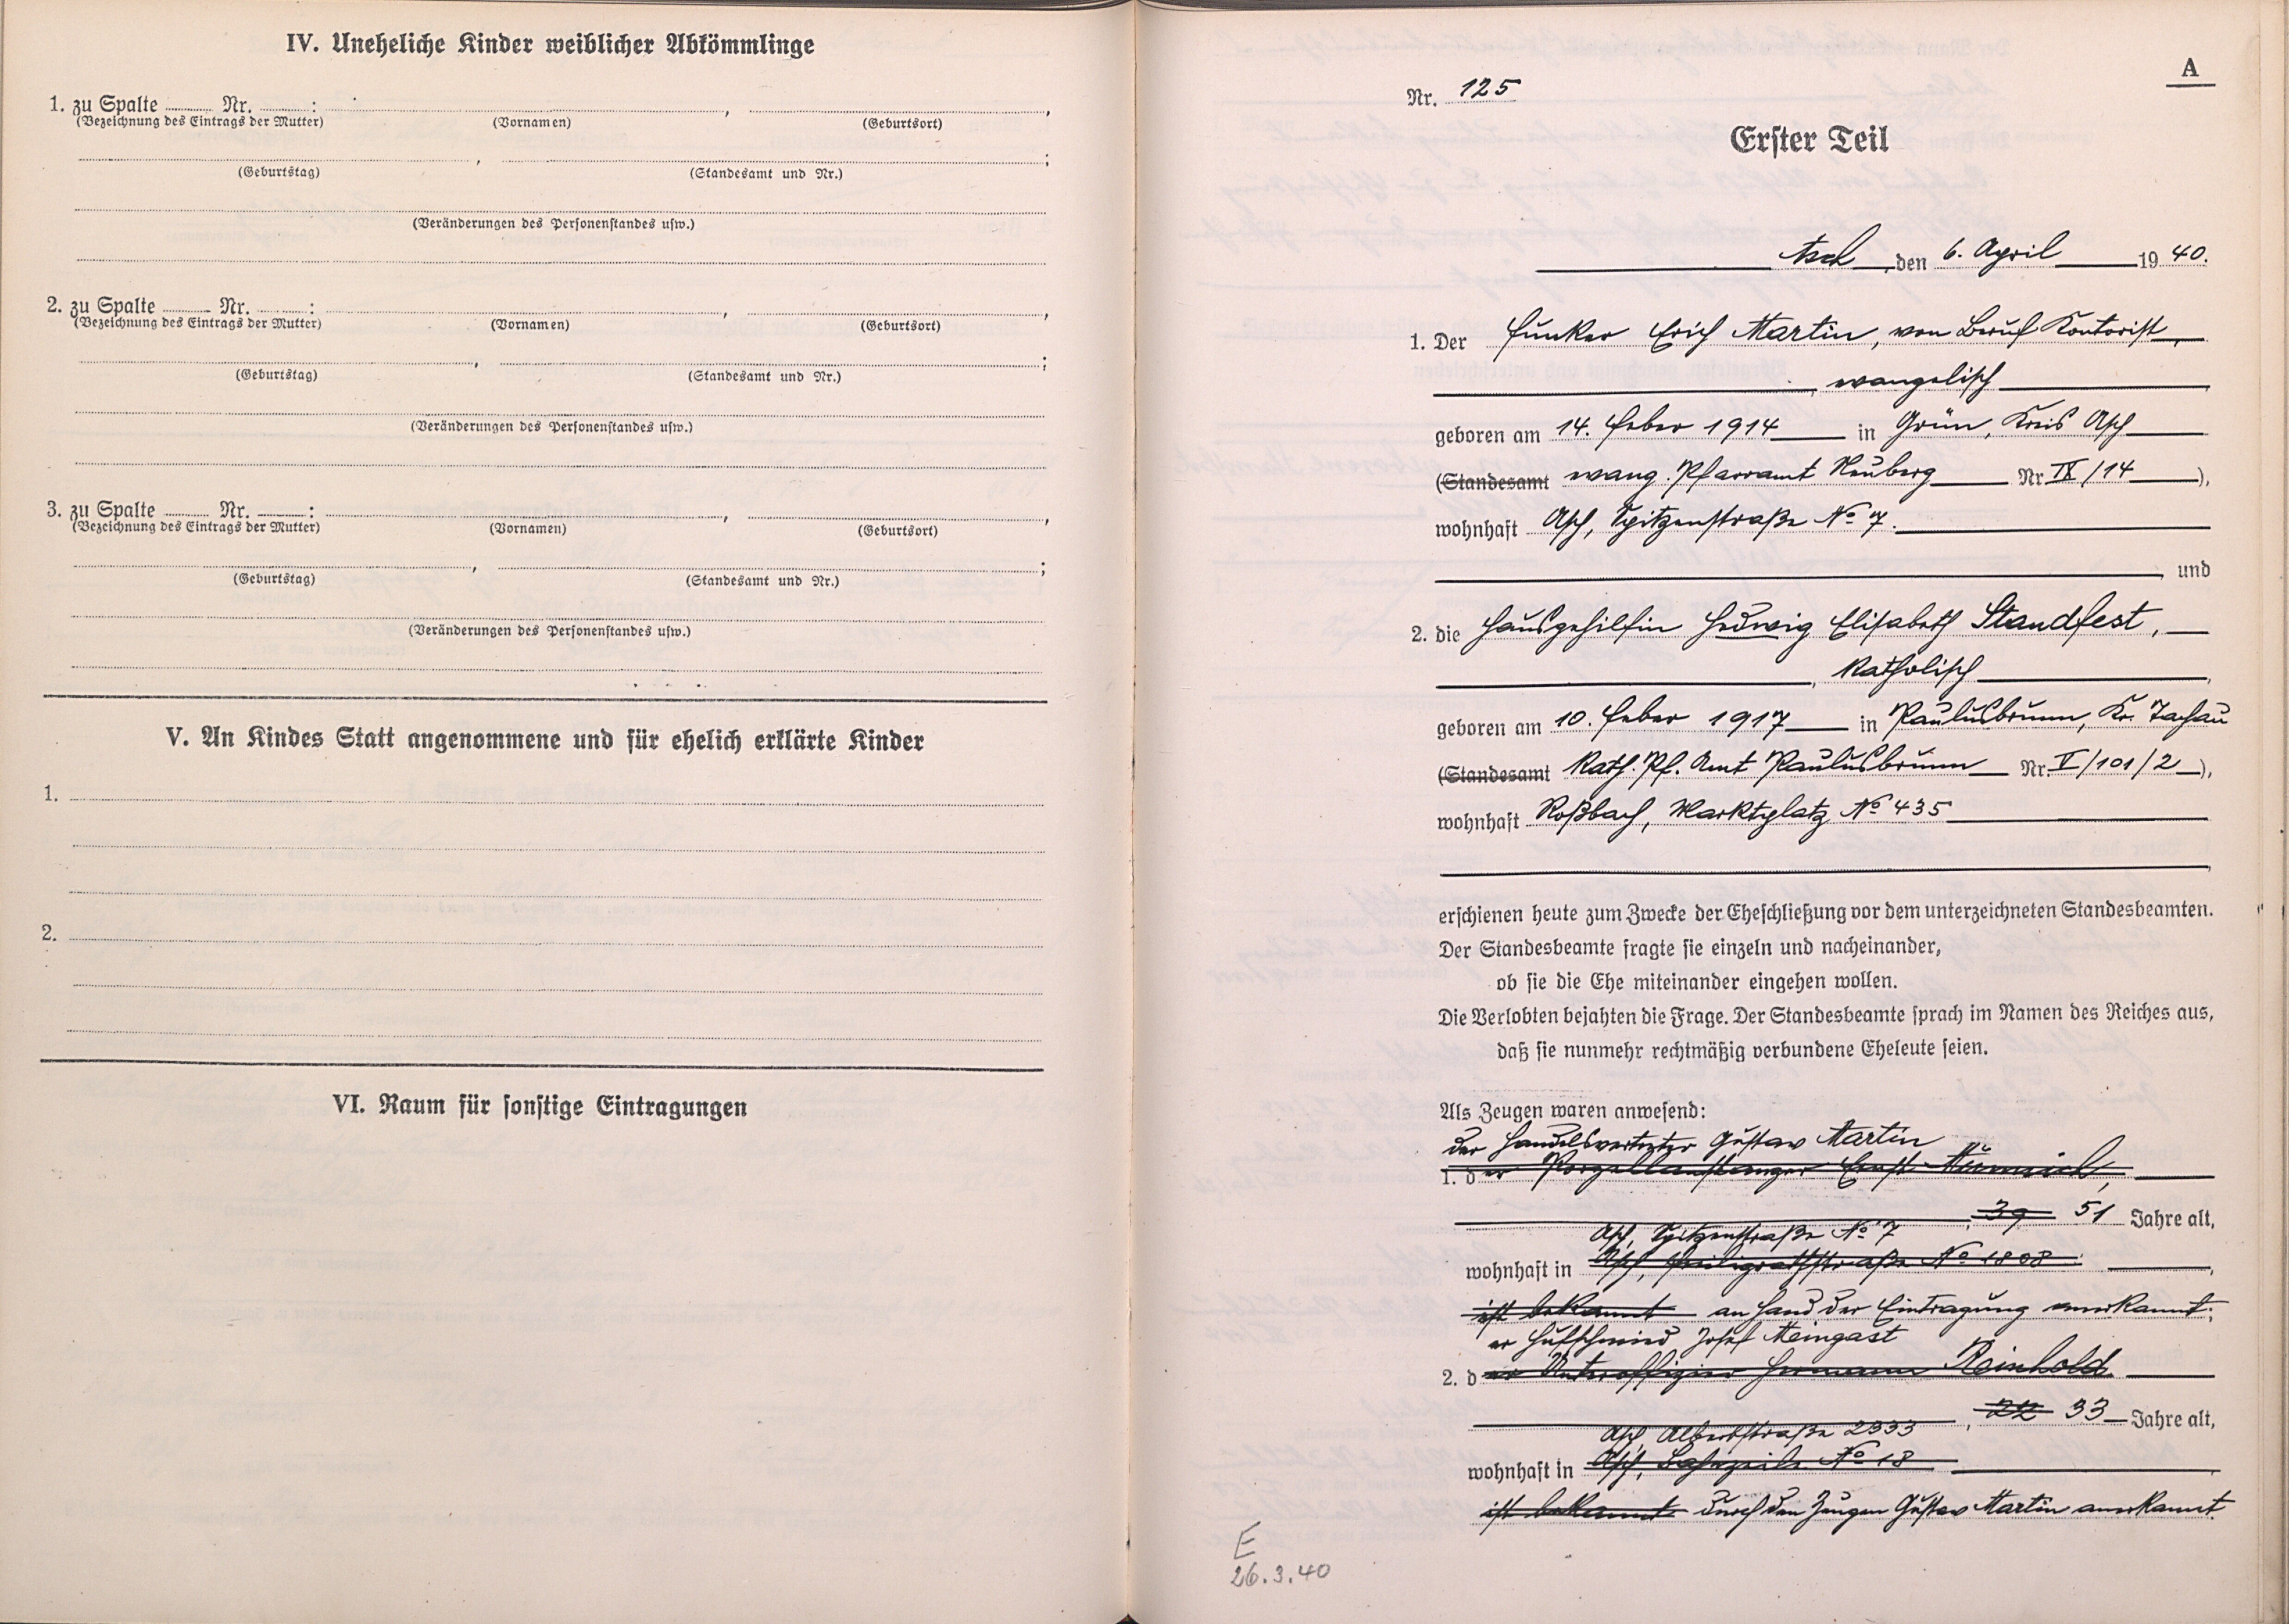 IV. Uneheliche Kinder weiblicher Abkömmlinge
1. zu Spalte ........ Nr. ........ : ........ , ........ ,
(Bezeichnung des Eintrags der Mutter) (Vornamen) (Geburtsort)
........ , ........ ;
(Geburtstag) (Standesamt und Nr.)
(Veränderungen des Personenstandes usw.)
2. zu Spalte ........ Nr. ........ : ........ , ........ ,
(Bezeichnung des Eintrags der Mutter) (Vornamen) (Geburtsort)
........ , ........ ;
(Geburtstag) (Standesamt und Nr.)
(Veränderungen des Personenstandes usw.)
3. zu Spalte ........ Nr. ........ : ........ , ........ ,
(Bezeichnung des Eintrags der Mutter) (Vornamen) (Geburtsort)
........ , ........ ;
(Geburtstag) (Standesamt und Nr.)
(Veränderungen des Personenstandes usw.)
V. An Kindes Statt angenommene und für ehelich erklärte Kinder
1.
2.
VI. Raum für sonstige Eintragungen
A
Nr. 125
Erster Teil
Asch, den 6. April 1940.
1. Der Funker Erich Martin, von Beruf Kontorist,
, evangelisch,
geboren am 14. Feber 1914 in Grün, Kreis Asch
(Standesamt evang. Pfarramt Neuberg Nr. IX/14),
wohnhaft Asch, Spitzenstraße No 7.
, und
2. die Hausgehilfin Hedwig Elisabeth Standfest,
, katholisch,
geboren am 10. Feber 1917 in Paulusbrunn, Kr. Tachau
(Standesamt Kath. Pf. Amt Paulusbrunn Nr. V/101/2),
wohnhaft Roßbach, Marktplatz No 435
,
erschienen heute zum Zwecke der Eheschließung vor dem unterzeichneten Standesbeamten.
Der Standesbeamte fragte sie einzeln und nacheinander,
ob sie die Ehe miteinander eingehen wollen.
Die Verlobten bejahten die Frage. Der Standesbeamte sprach im Namen des Reiches aus,
daß sie nunmehr rechtmäßig verbundene Eheleute seien.
Als Zeugen waren anwesend:
der Handelsvertreter Gustav Martin
1. der Ernst
, 39 51 Jahre alt,
Asch, Spitzenstraße No 7
wohnhaft in Asch, Freiligrathstraße No 1808,
ist bekannt an Hand der Eintragung anerkannt;
er Hufschmied Josef Meingast
2. der Unteroffizier Hermann Reinhold
, 22 33 Jahre alt,
Asch, Albertstraße 2333
wohnhaft in Asch, No 18
ist bekannt durch den Zeugen Gustav Martin anerkannt.
E
26.3.40